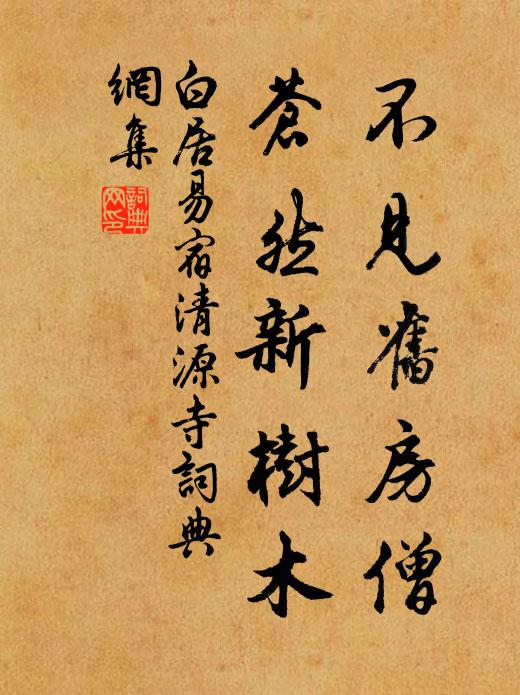 不見舊房僧
蒼然新樹木
白居易宿清源寺詞典
網集
詞典
网印